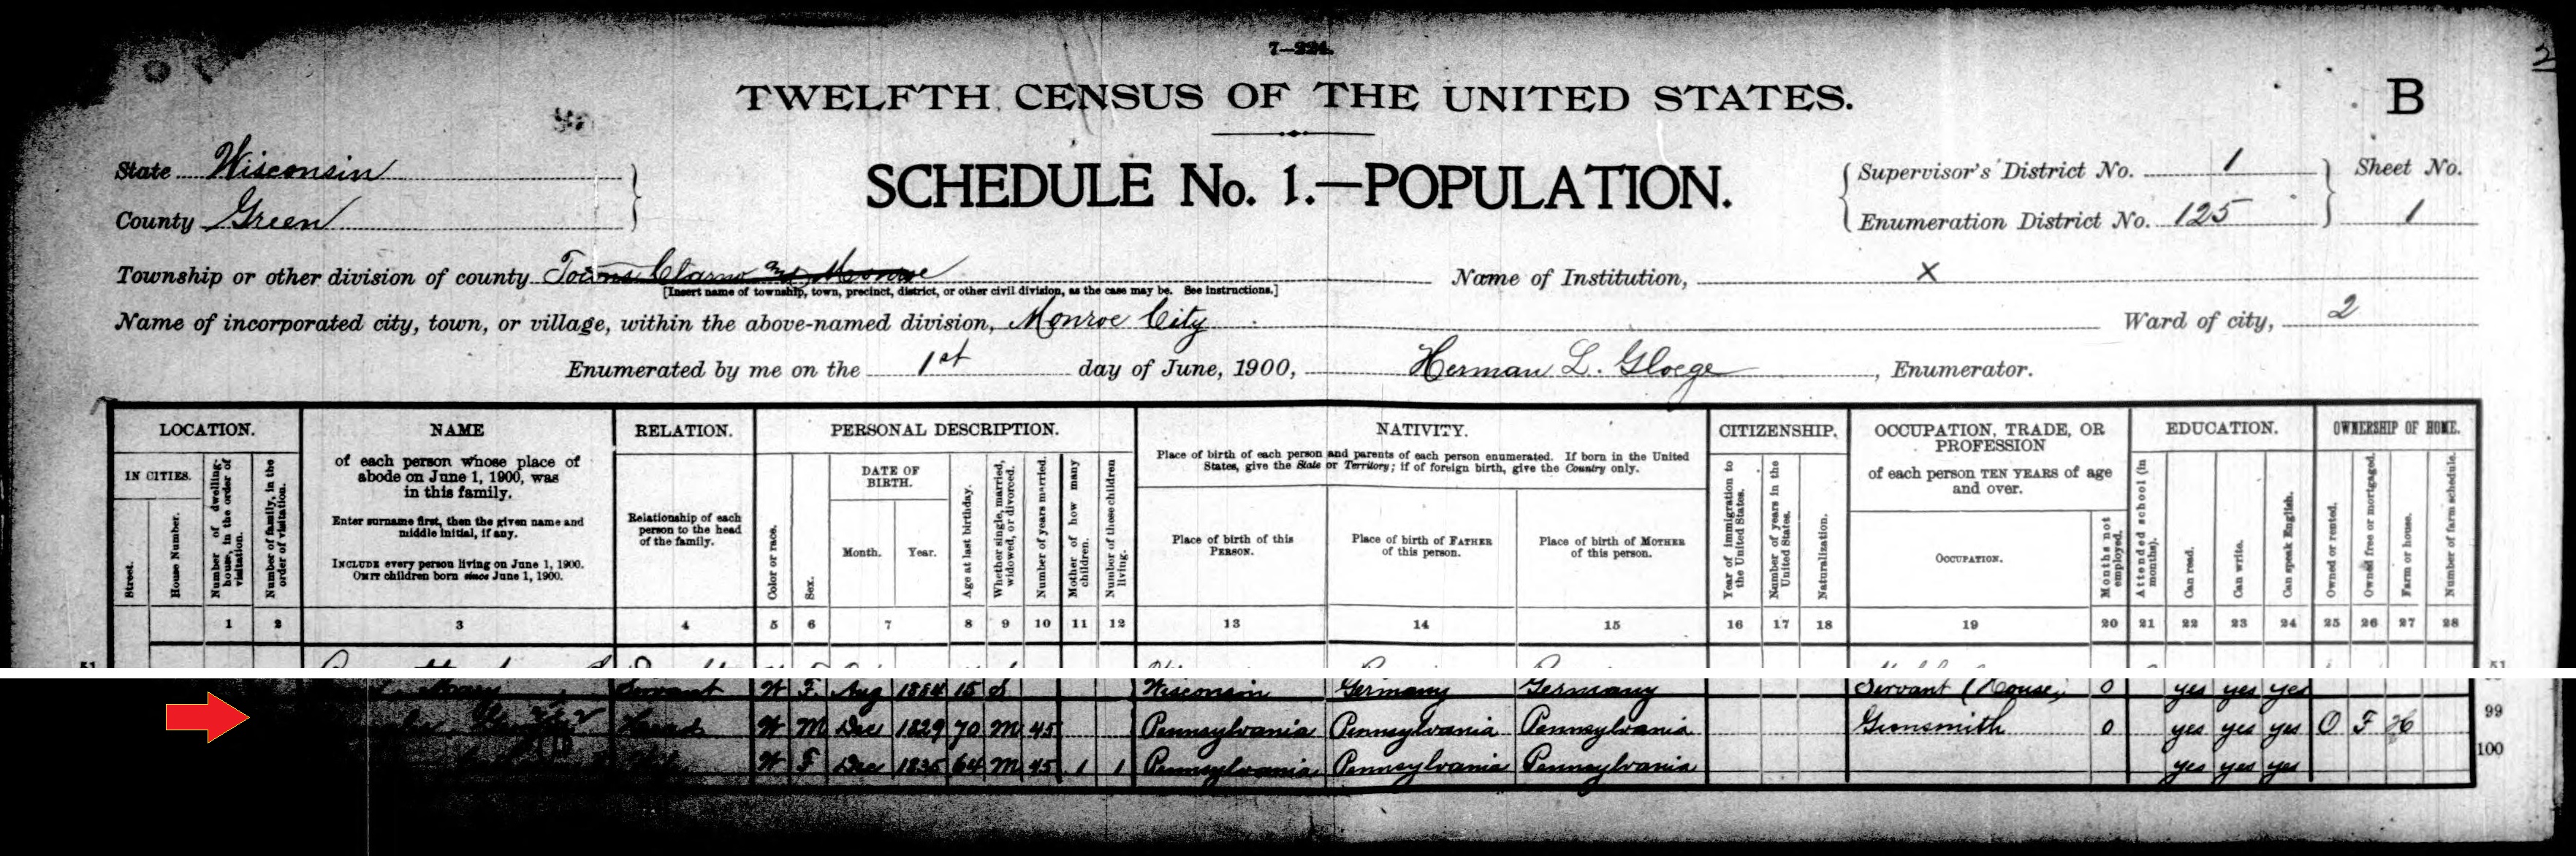 7—224.
2
TWELFTH CENSUS OF THE UNITED STATES.
B
State Wisconsin
County Green
SCHEDULE No. 1.—POPULATION.
Supervisor's District No. 1
Enumeration District No. 125
Sheet No.
1
Township or other division of county Towns Clarno and Monroe
[Insert name of township, town, precinct, district, or other civil division, as the case may be. See instructions.]
Name of Institution, X
Name of incorporated city, town, or village, within the above-named division, Monroe City
Ward of city, 2
Enumerated by me on the 1st day of June, 1900, Herman L. Gloege, Enumerator.
LOCATION.
IN CITIES.
Street.
House Number.
Number of dwelling-house, in the order of visitation.
Number of family, in the order of visitation.
NAME
of each person whose place of abode on June 1, 1900, was in this family.
Enter surname first, then the given name and middle initial, if any.
INCLUDE every person living on June 1, 1900.
OMIT children born since June 1, 1900.
RELATION.
Relationship of each person to the head of the family.
PERSONAL DESCRIPTION.
Color or race.
Sex.
DATE OF BIRTH.
Month.
Year.
Age at last birthday.
Whether single, married, widowed, or divorced.
Number of years married.
Mother of how many children.
Number of these children living.
NATIVITY.
Place of birth of each person and parents of each person enumerated. If born in the United States, give the State or Territory; if of foreign birth, give the Country only.
Place of birth of this PERSON.
Place of birth of FATHER of this person.
Place of birth of MOTHER of this person.
CITIZENSHIP.
Year of immigration to the United States.
Number of years in the United States.
Naturalization.
OCCUPATION, TRADE, OR PROFESSION
of each person TEN YEARS of age and over.
OCCUPATION.
Months not employed.
EDUCATION.
Attended school (in months).
Can read.
Can write.
Can speak English.
OWNERSHIP OF HOME.
Owned or rented.
Owned free or mortgaged.
Farm or house.
Number of farm schedule.
1 2 3 4 5 6 7 8 9 10 11 12 13 14 15 16 17 18 19 20 21 22 23 24 25 26 27 28
51 51
Mary Servant W F Aug 1884 15 S Wisconsin Germany Germany Servant (House) 0 yes yes yes
Head W M Dec 1829 70 M 45 Pennsylvania Pennsylvania Pennsylvania Gunsmith 0 yes yes yes O F H 99
W F Dec 1835 64 M 45 1 1 Pennsylvania Pennsylvania Pennsylvania yes yes yes 100